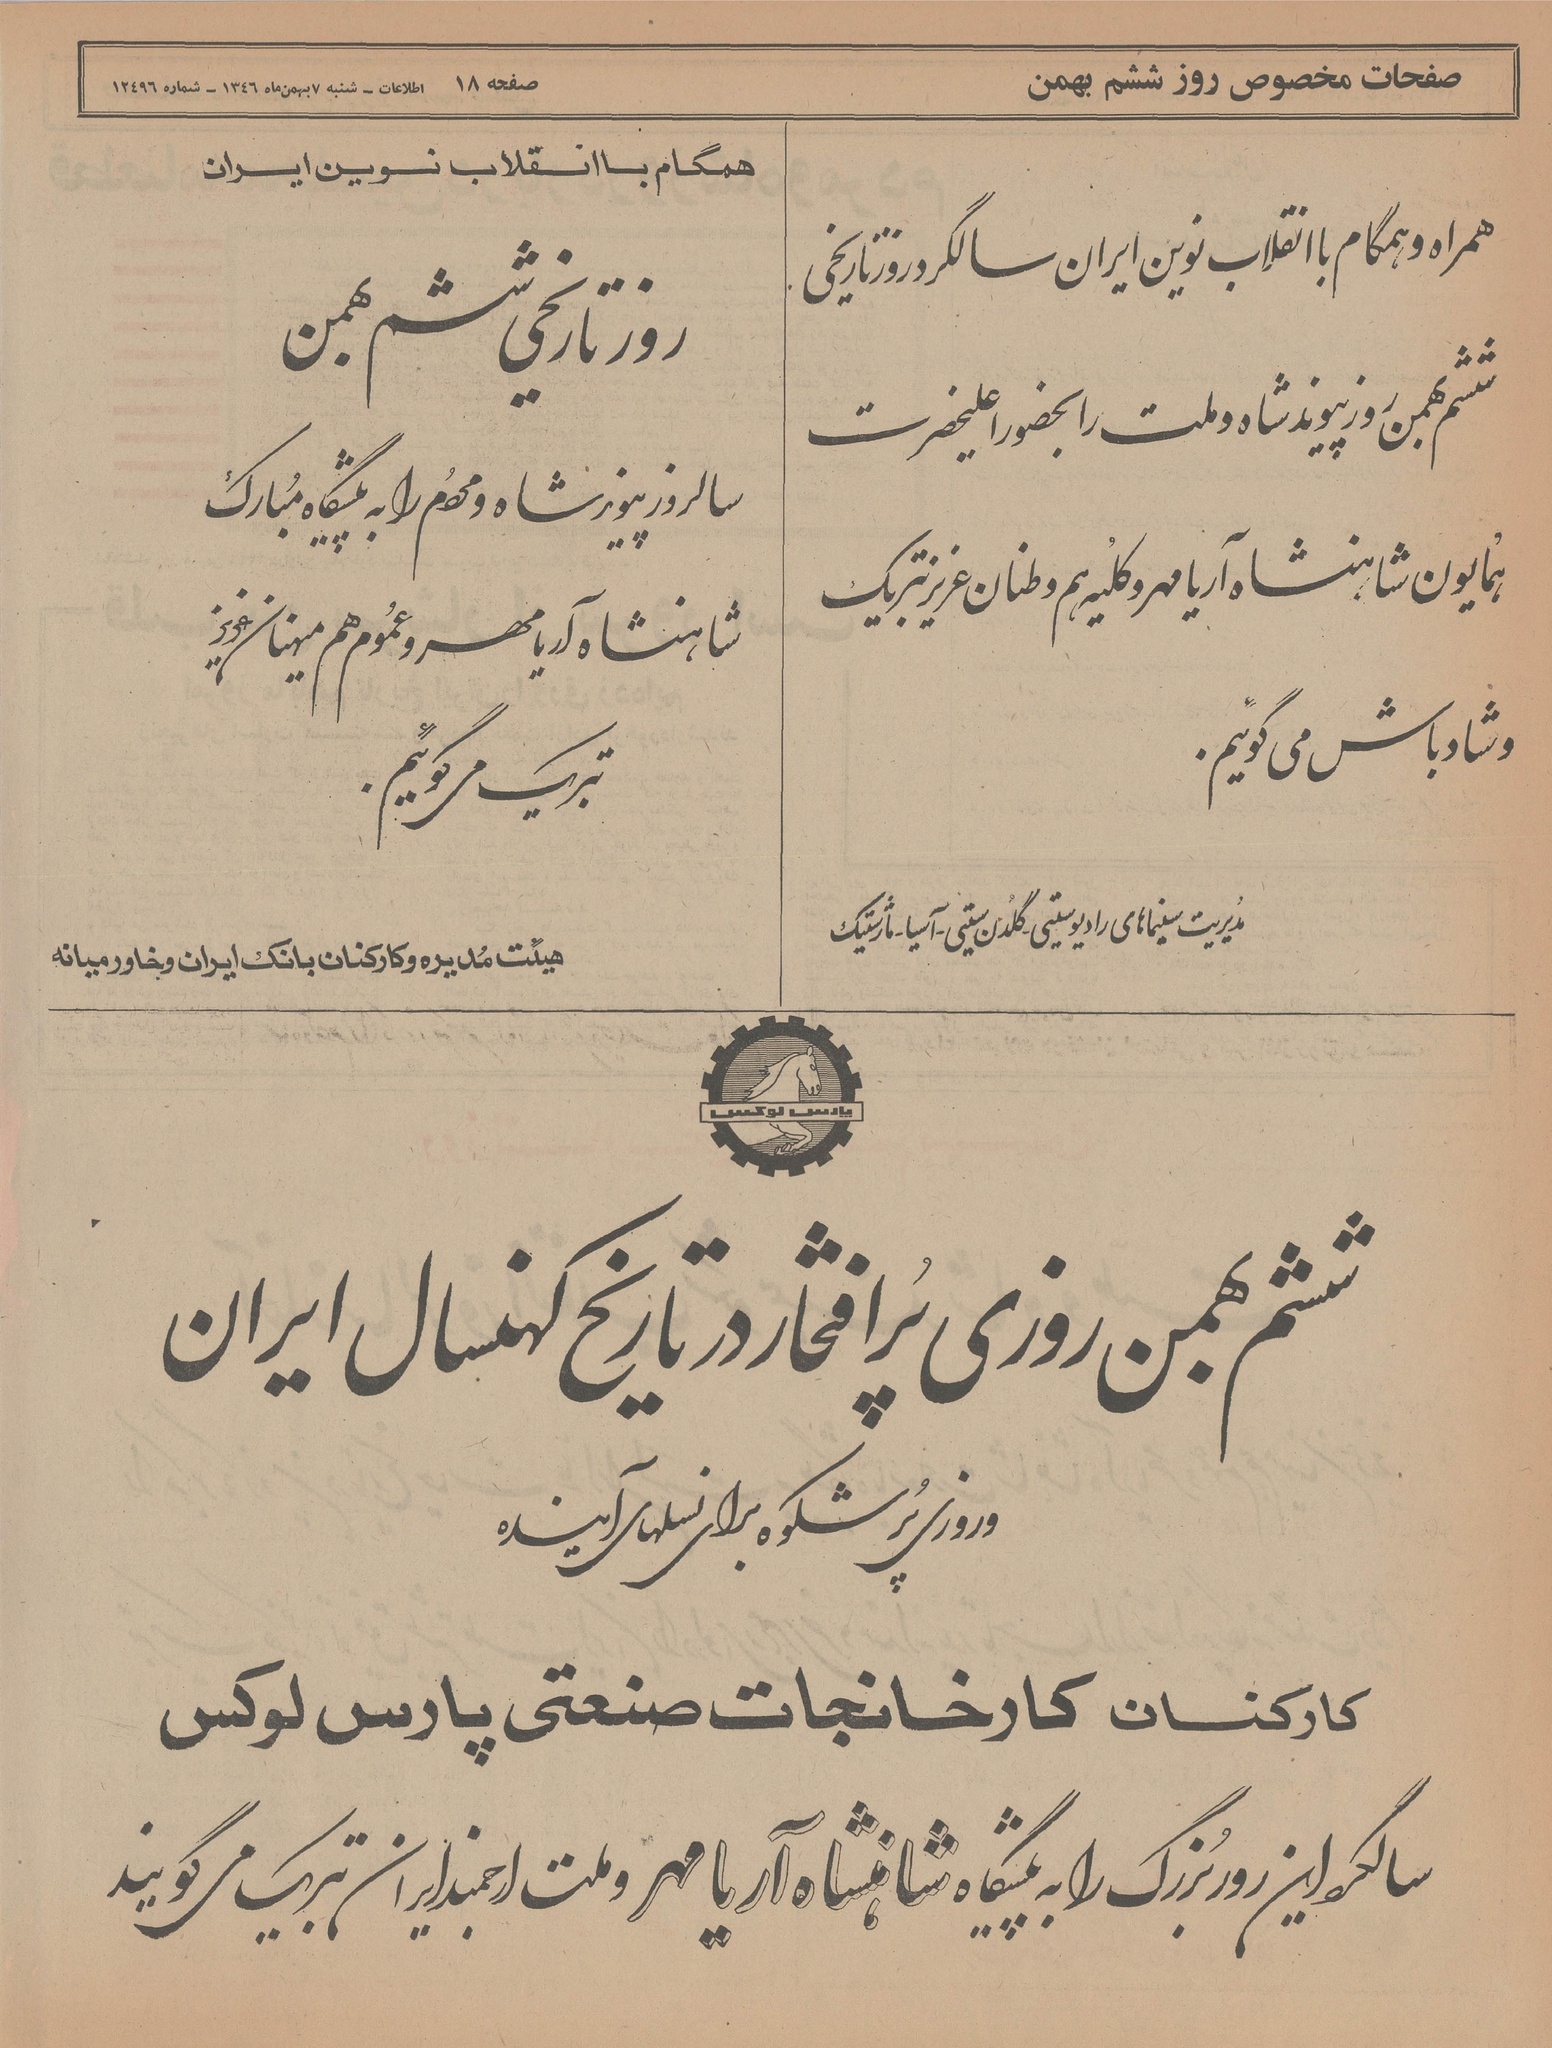 صفحات مخصوص روز ششم بهمن
صفحه ۱۸ اطلاعات ـ شنبه ۷ بهمن ماه ۱۳۴۶ ـ شماره ۱۲۴۹۶
همراه و همگام با انقلاب نوین ایران سالگرد روز تاریخی
ششم بهمن روز پیوند شاه و ملت را بحضور اعلیحضرت
همایون شاهنشاه آریامهر و کلیه هم وطنان عزیز تبریک
و شادباش می گوئیم .
مدیریت سینماهای رادیوسیتی - گلدن سیتی - آسیا - ماژستیک
همگام با انقلاب نوین ایران
روز تاریخی ششم بهمن
سالروز پیوند شاه و مردم را به پیشگاه مبارک
شاهنشاه آریامهر و عموم هم میهنان عزیز
تبریک می گوئیم .
هیئت مدیره و کارکنان بانک ایران و خاورمیانه
پارس لوکس
ششم بهمن روزی پُر افتخار در تاریخ کهنسال ایران
و روزی پُر شکوه برای نسلهای آینده
کارکنان کارخانجات صنعتی پارس لوکس
سالگرد این روز بزرگ را به پیشگاه شاهنشاه آریامهر و ملت ارجمند ایران تبریک می گویند